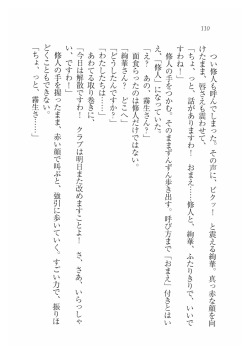 110
つい修人も呼んでしまった。その声に、ビクッ！　と震える絢華。真っ赤な顔を向
けたまま、唇さえも震わせて、
「ちょ、ちょっと、話がありますわ！　おまえ……修人と、絢華、ふたりきりで、いで
すわね！」
修人の手をつかむ。そのままずんずん歩き出す。呼び方まで「おまえ」付きとはい
え、「修人」になっていた。
「え？　あの、霧生さん？」
面食らったのは修人だけではない。
「絢華さん？　どこへ」
「どうしたんですか？」
「わたしたちは……」
あわてる取り巻きに、
「今日は解散ですわ！　クラブは明日また改めますことよ！　さ、さあ、いらっしゃ
い、ですわ！」
修人の手を握ったまま、赤い顔で叫ぶと、強引に歩いていく。すごい力で、振りほ
どくこともできない。
「ちょ、ちょっと、霧生さ……」